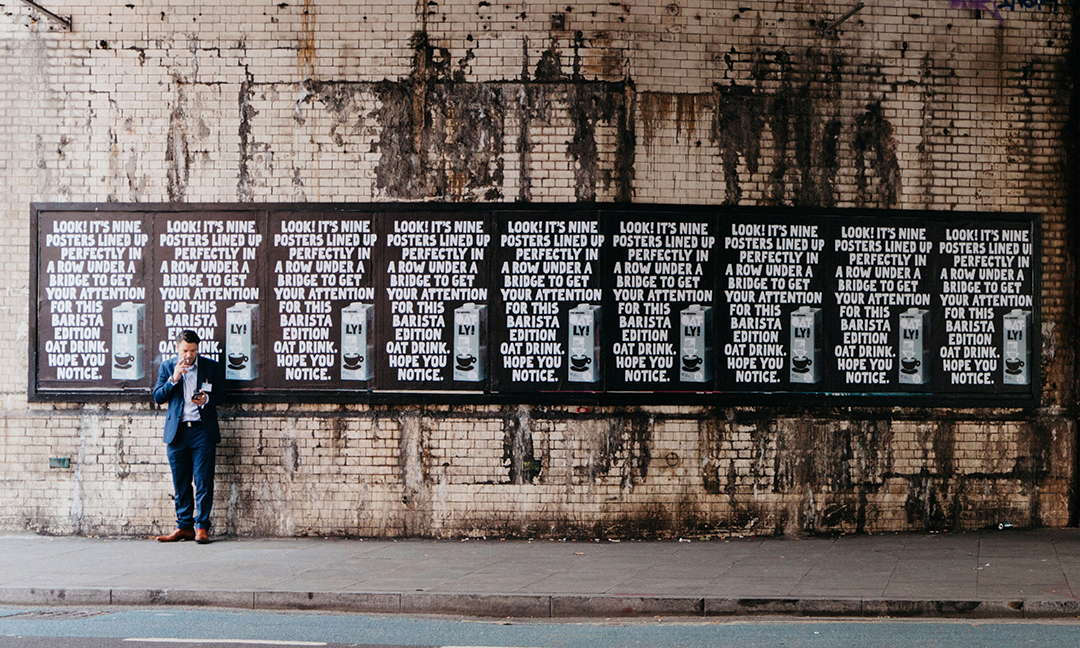 LOOK! IT'S NINE
POSTERS LINED UP
PERFECTLY IN
A ROW UNDER A
BRIDGE TO GET
YOUR ATTENTION
FOR THIS
BARISTA
EDITION
OAT DRINK.
HOPE YOU
NOTICE.
LY!
LOOK! IT'S NINE
POSTERS LINED UP
PERFECTLY IN
A ROW UNDER A
BRIDGE TO GET
YOUR ATTENTION
FOR THIS
BARISTA
LY!
LOOK! IT'S NINE
POSTERS LINED UP
PERFECTLY IN
A ROW UNDER A
BRIDGE TO GET
YOUR ATTENTION
FOR THIS
BARISTA
EDITION
OAT DRINK.
HOPE YOU
NOTICE.
LY!
LOOK! IT'S NINE
POSTERS LINED UP
PERFECTLY IN
A ROW UNDER A
BRIDGE TO GET
YOUR ATTENTION
FOR THIS
BARISTA
EDITION
OAT DRINK.
HOPE YOU
NOTICE.
LY!
LOOK! IT'S NINE
POSTERS LINED UP
PERFECTLY IN
A ROW UNDER A
BRIDGE TO GET
YOUR ATTENTION
FOR THIS
BARISTA
EDITION
OAT DRINK.
HOPE YOU
NOTICE.
LY!
LOOK! IT'S NINE
POSTERS LINED UP
PERFECTLY IN
A ROW UNDER A
BRIDGE TO GET
YOUR ATTENTION
FOR THIS
BARISTA
EDITION
OAT DRINK.
HOPE YOU
NOTICE.
LY!
LOOK! IT'S NINE
POSTERS LINED UP
PERFECTLY IN
A ROW UNDER A
BRIDGE TO GET
YOUR ATTENTION
FOR THIS
BARISTA
EDITION
OAT DRINK.
HOPE YOU
NOTICE.
LY!
LOOK! IT'S NINE
POSTERS LINED UP
PERFECTLY IN
A ROW UNDER A
BRIDGE TO GET
YOUR ATTENTION
FOR THIS
BARISTA
EDITION
OAT DRINK.
HOPE YOU
NOTICE.
LY!
LOOK! IT'S NINE
POSTERS LINED U
PERFECTLY IN
A ROW UNDER A
BRIDGE TO GET
YOUR ATTENTION
FOR THIS
BARISTA
EDITION
OAT DRINK.
HOPE YOU
NOTICE.
LY!